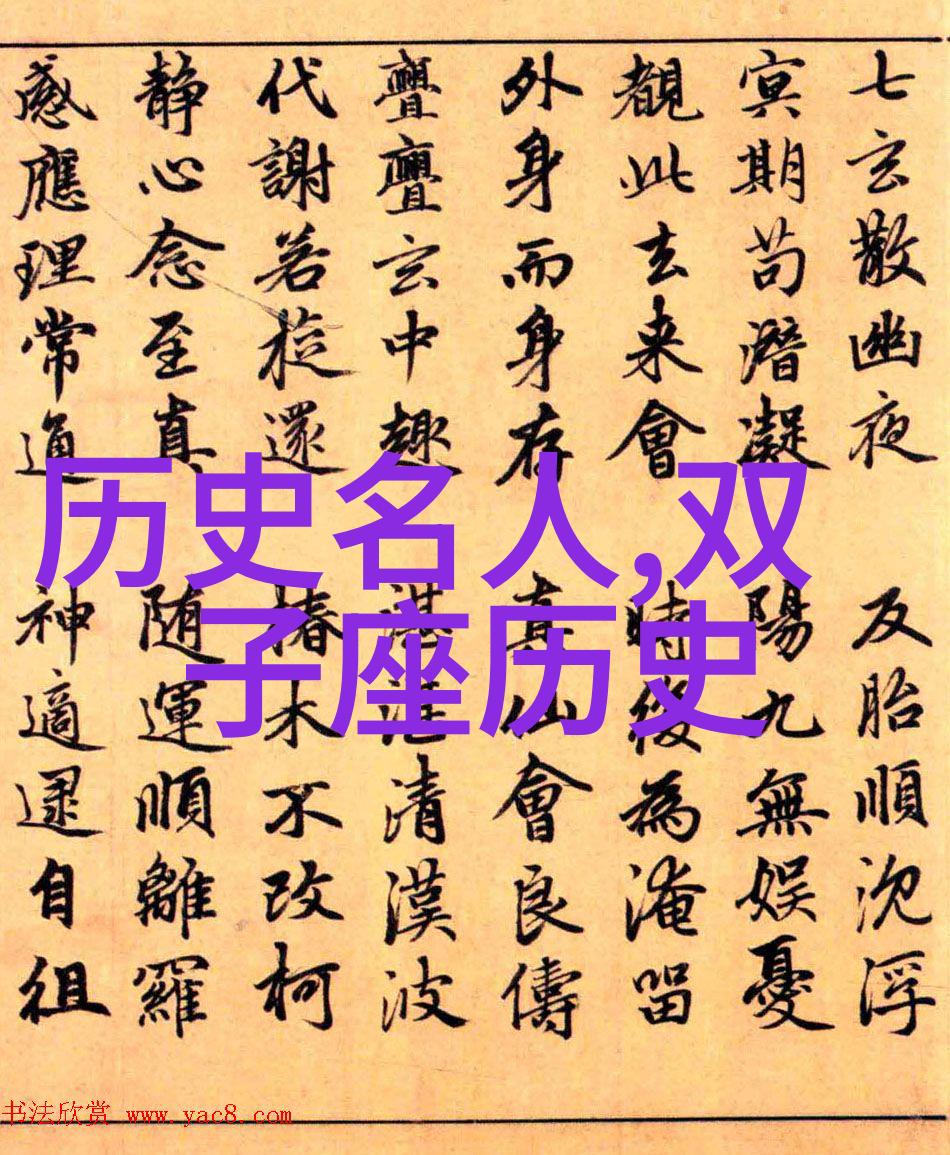 七玄散幽夜 反胎順沈浮
冥期苟潛凝 陽九無娛憂
觀此去來會 時後為淹留
外身而身存 真仙會良儔
亹亹玄中趣 湛湛清漢波
代謝若旋還 椿木不改柯
静心念至真 随運順離羅
感應理常通 神適遝自徂
历史名人,双
子座历史
书法欣赏 www.yac8.com